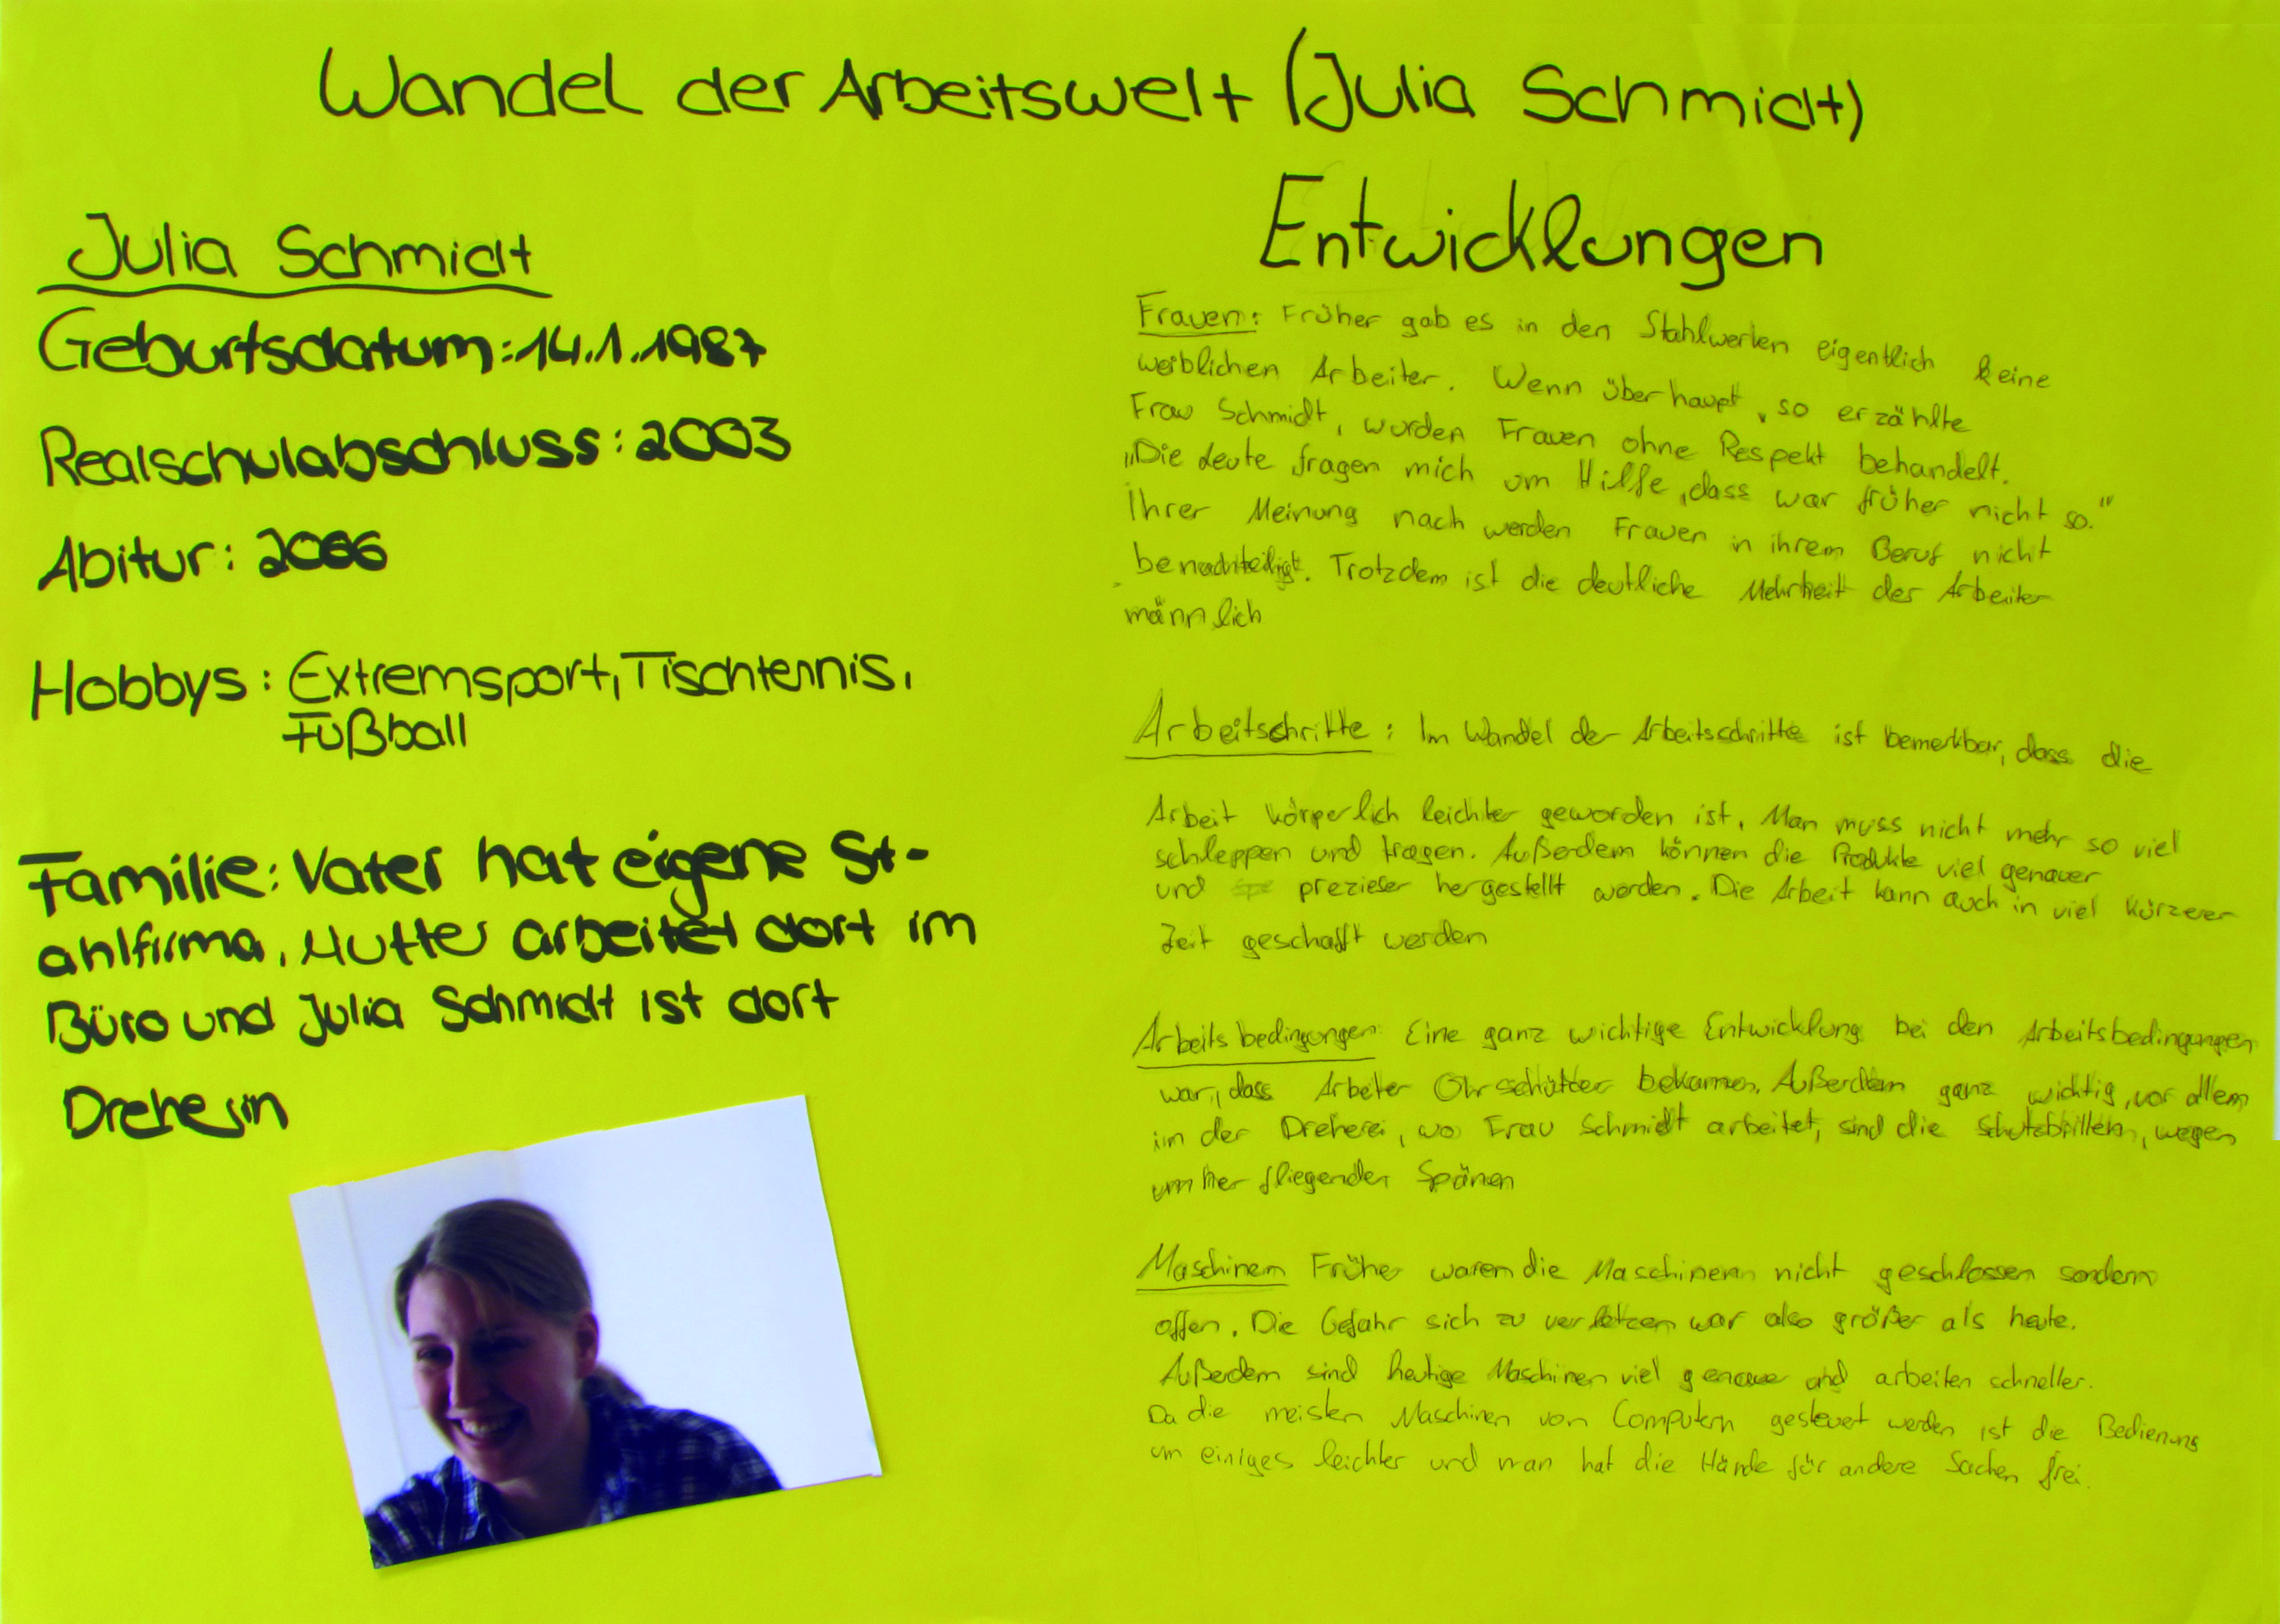 Wandel der Arbeitswelt (Julia Schmidt)
Julia Schmidt
Geburtsdatum: 14.1.1987
Realschulabschluss: 2003
Abitur: 2006
Hobbys: Extremsport, Tischtennis,
Fußball
Familie: Vater hat eigene St-
ahlfirma, Mutter arbeitet dort im
Büro und Julia Schmidt ist dort
Dreherin
Entwicklungen
Frauen: Früher gab es in den Stahlwerken eigentlich keine
weiblichen Arbeiter. Wenn überhaupt, so erzählte
Frau Schmidt, wurden Frauen ohne Respekt behandelt.
„Die Leute fragen mich um Hilfe, dass war früher nicht so.“
Ihrer Meinung nach werden Frauen in ihrem Beruf nicht
benachteiligt. Trotzdem ist die deutliche Mehrheit der Arbeiter
männlich
Arbeitschritte: Im Wandel der Arbeitsschritte ist bemerkbar, dass die
Arbeit körperlich leichter geworden ist. Man muss nicht mehr so viel
schleppen und tragen. Außerdem können die Produkte viel genauer
und prezieser hergestellt werden. Die Arbeit kann auch in viel kürzerer
Zeit geschafft werden
Arbeitsbedingungen: Eine ganz wichtige Entwicklung bei den Arbeitsbedingungen
war, dass Arbeiter Ohrschützer bekamen. Außerdem ganz wichtig, vor allem
in der Dreherei, wo Frau Schmidt arbeitet, sind die Schutzbrillen, wegen
umher fliegenden Spänen
Maschinen Früher waren die Maschinen nicht geschlossen sondern
offen. Die Gefahr sich zu verletzen war also größer als heute.
Außerdem sind heutige Maschinen viel genauer und arbeiten schneller.
Da die meisten Maschinen von Computern gesteuert werden ist die Bedienung
um einiges leichter und man hat die Hände für andere Sachen frei.